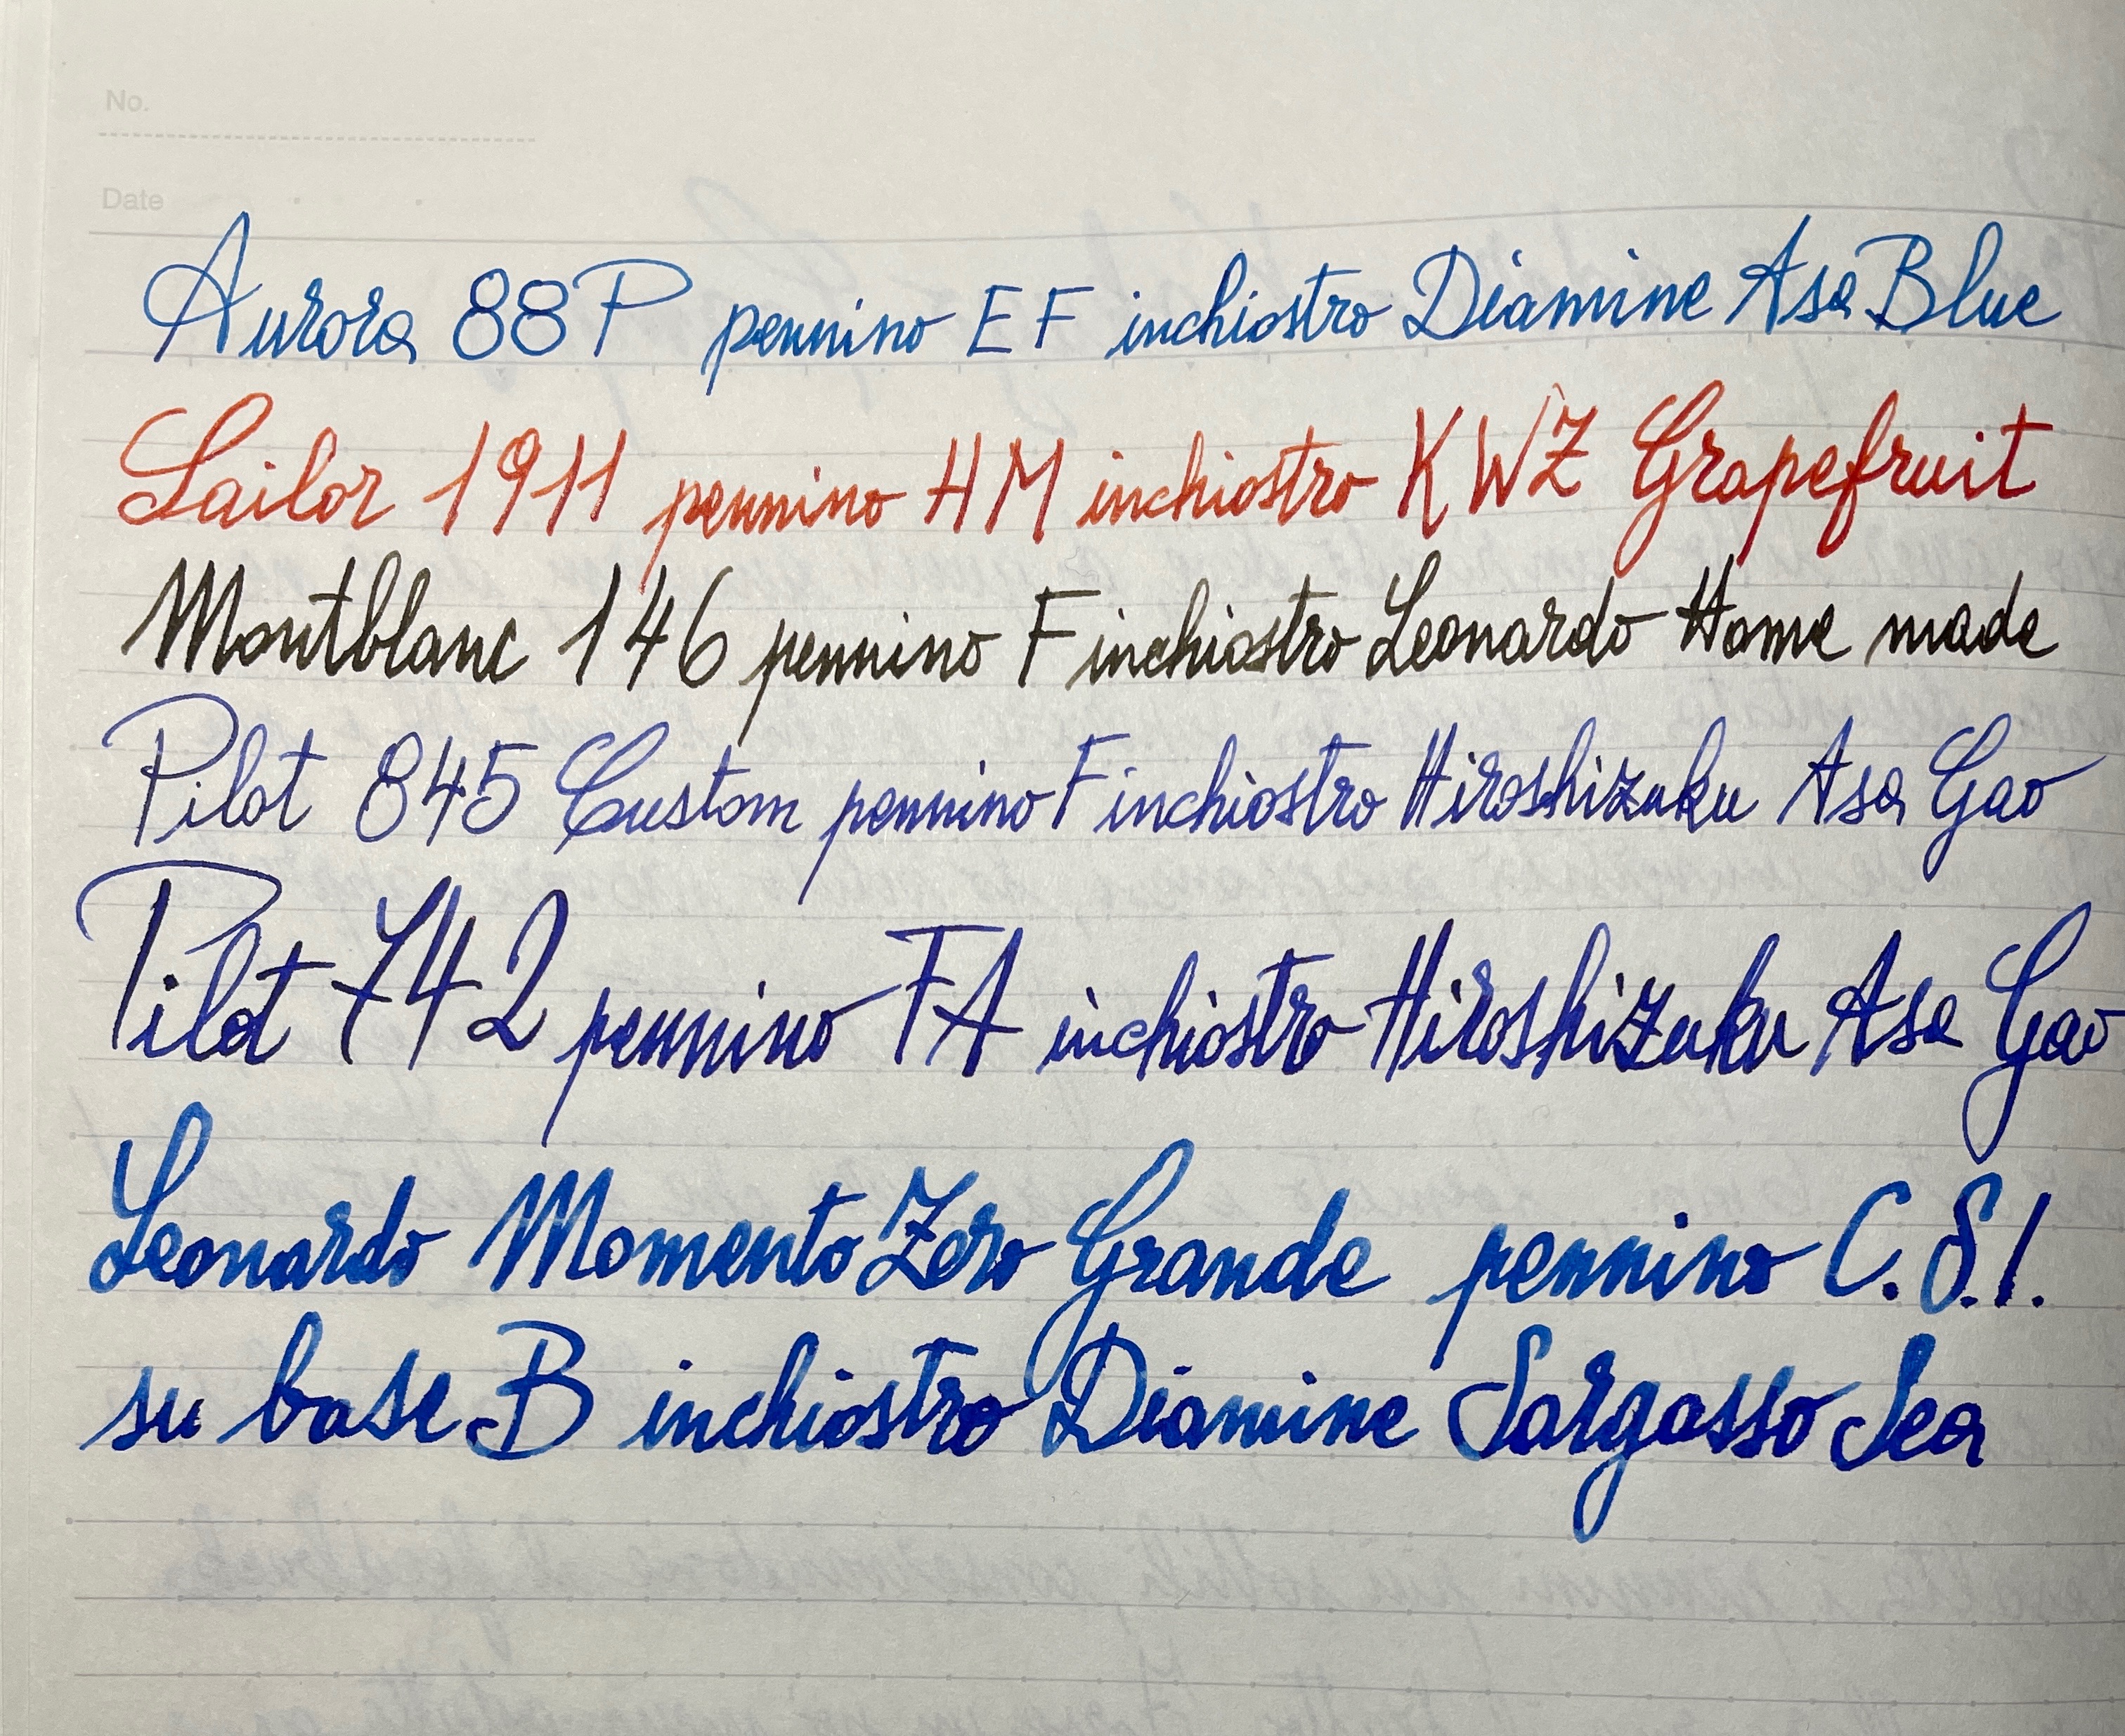 No.
Date
Aurora 88P pennino EF inchiostro Diamine Asa Blue
Sailor 1911 pennino HM inchiostro KWZ Grapefruit
Montblanc 146 pennino F inchiostro Leonardo Home made
Pilot 845 Custom pennino F inchiostro Hiroshizuku Asa Gao
Pilot 742 pennino FA inchiostro Hiroshizuku Asa Gao
Leonardo Momento Zero Grande pennino C.S.I.
su base B inchiostro Diamine Sargasso Sea